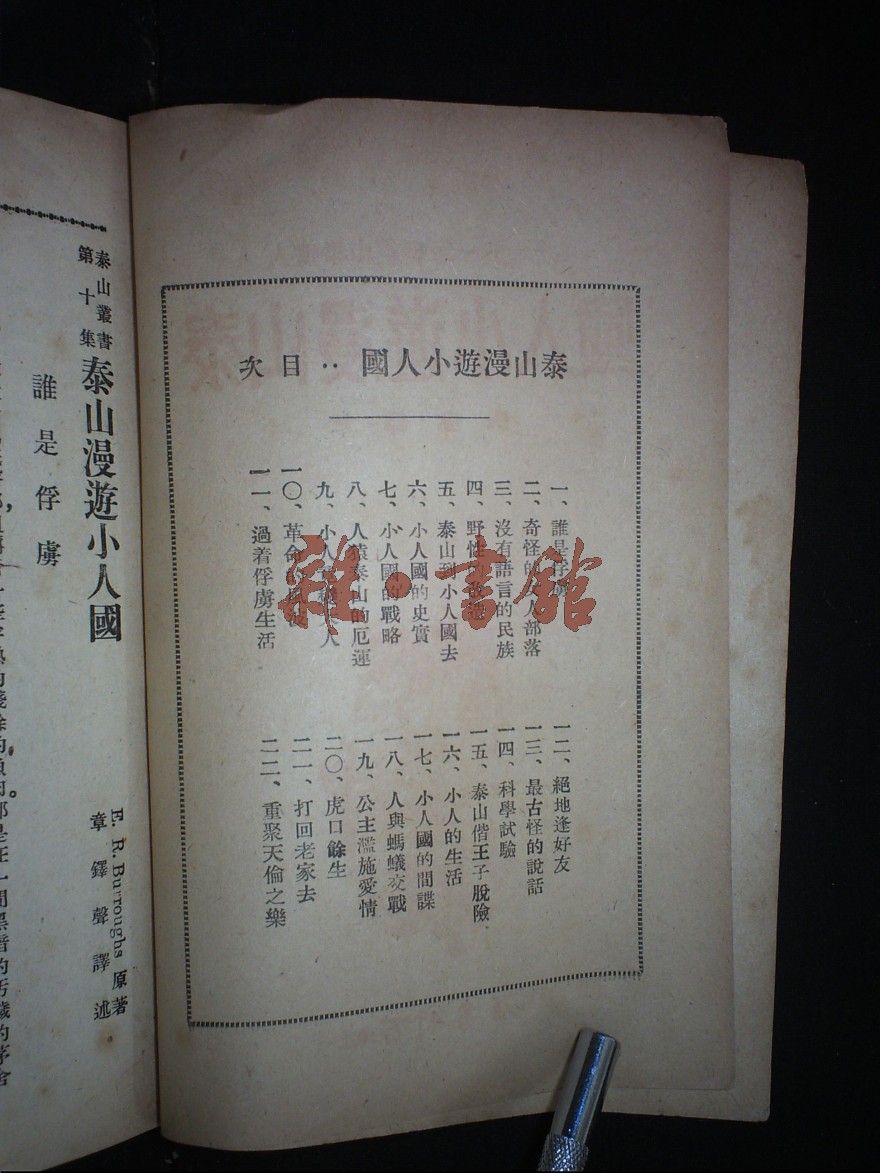 泰山漫遊小人國：目次
一、誰是俘虜
二、奇怪的 人部落
三、沒有語言的民族
四、野性的改造
五、泰山到小人國去
六、小人國的史實
七、小人國的戰略
八、人猿泰山的厄運
九、小人 人
一〇、革命的風波
一一、過着俘虜生活
一二、絕地逢好友
一三、最古怪的說話
一四、科學試驗
一五、泰山偕王子脫險
一六、小人的生活
一七、小人國的間諜
一八、人與螞蟻交戰
一九、公主濫施愛情
二〇、虎口餘生
二一、打回老家去
二二、重聚天倫之樂
泰山叢書
第十集
泰山漫遊小人國
E. R. Burroughs 原著
章鐸聲譯述
誰是俘虜
雜·書館